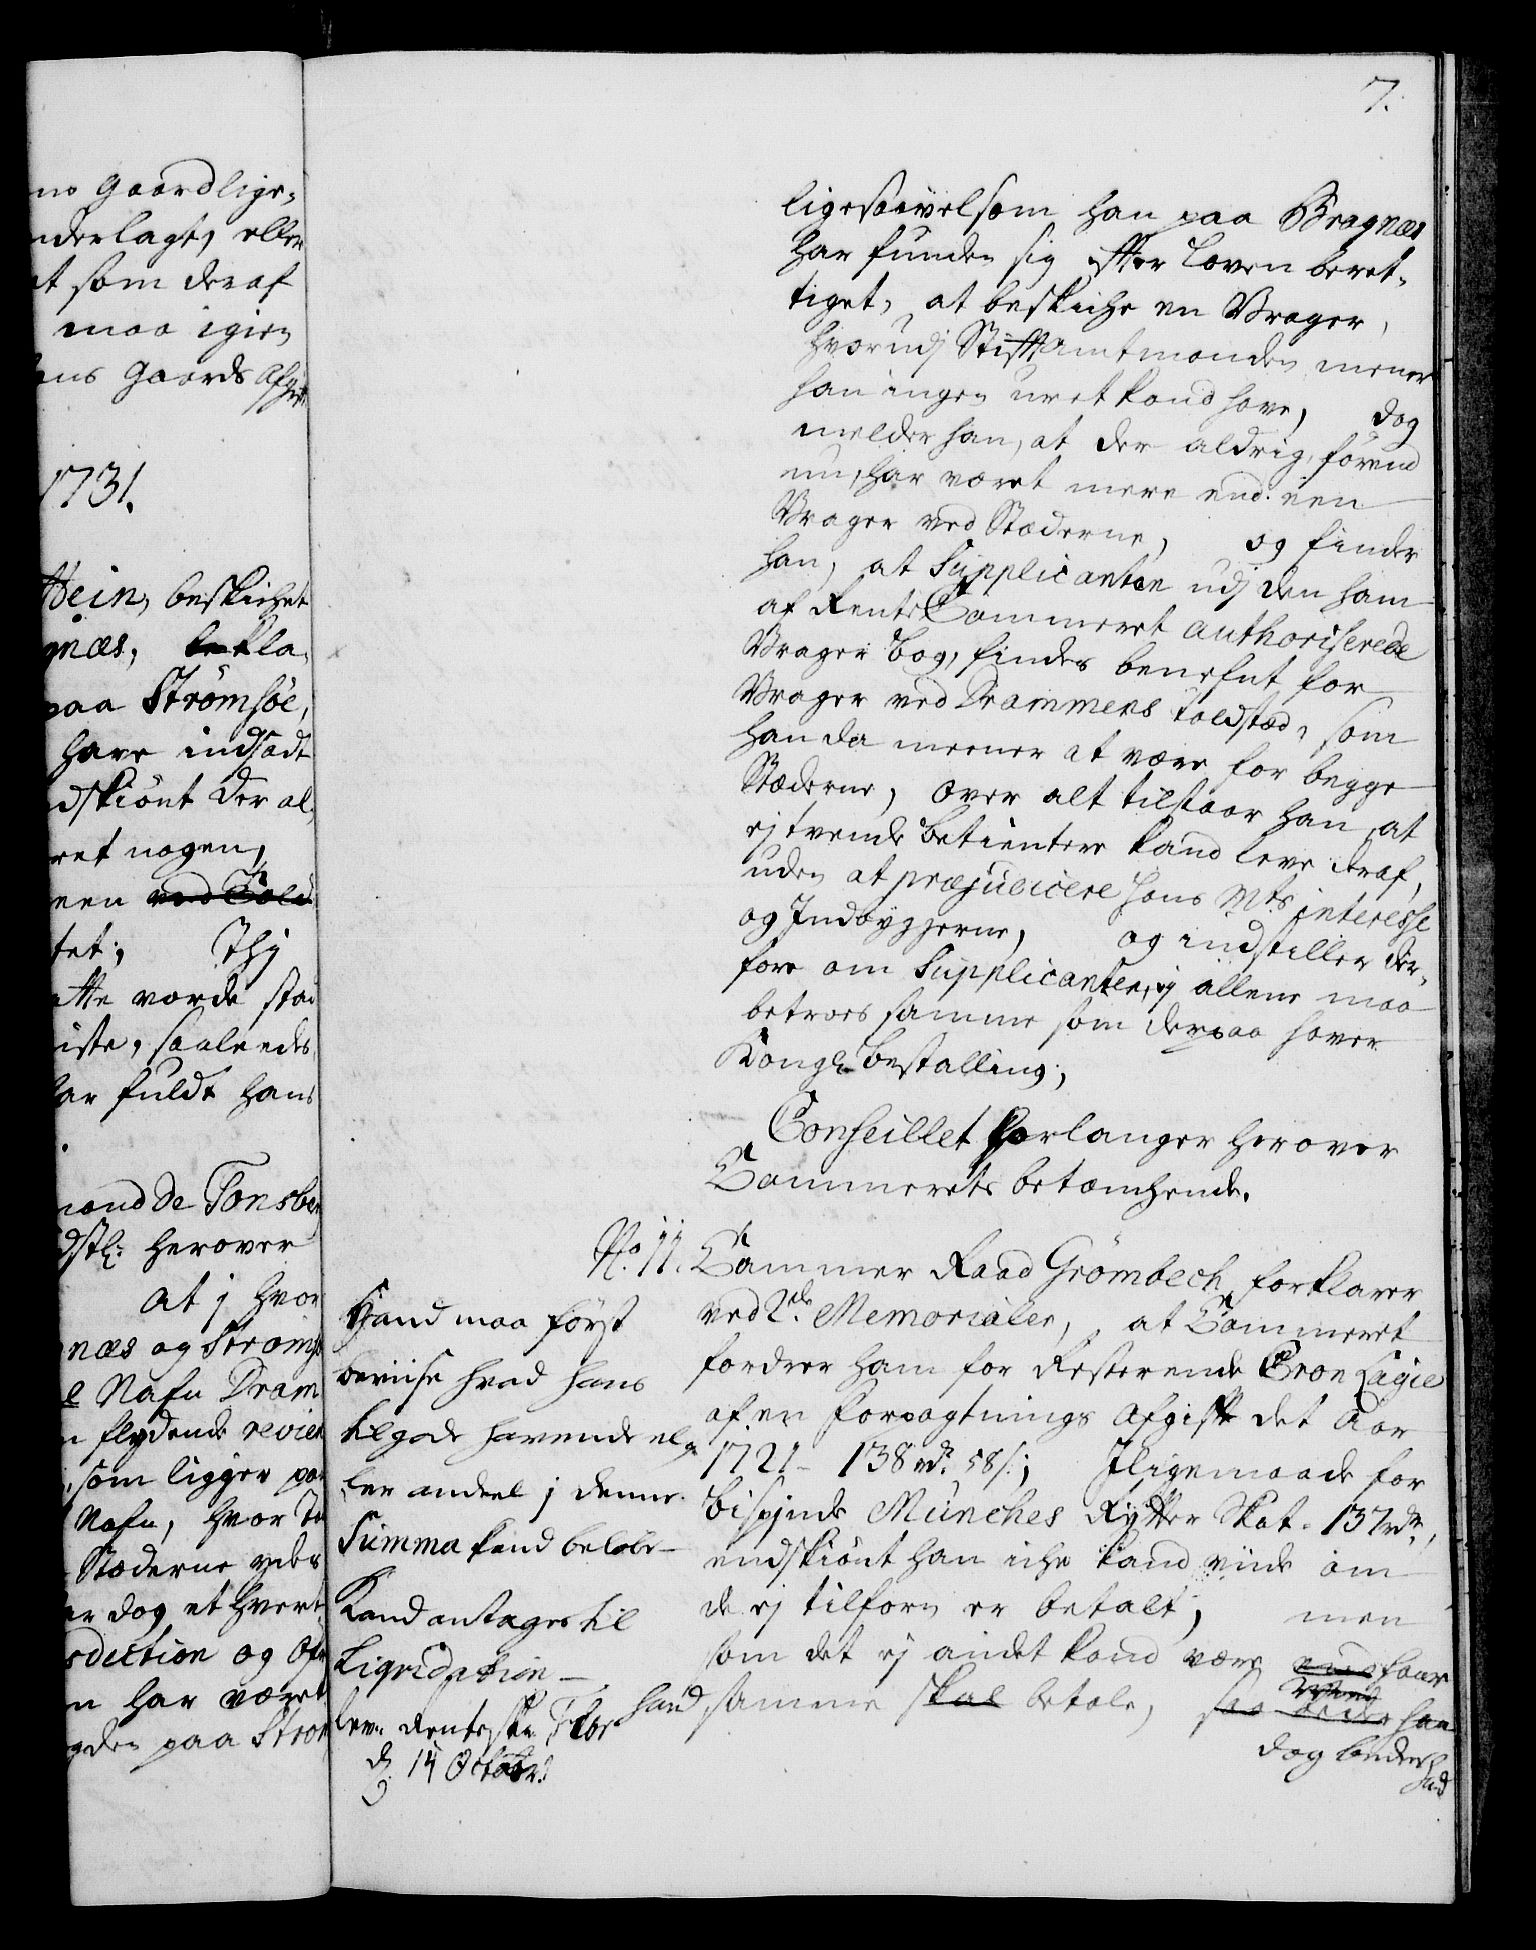 no Gaardlige-
nderlagt, eller
t som deraf
maa igien
ans Gaards Afgift
1731.
Hein, beskichet
gnæs, bekla-
paa Strømsøe,
have indsadt
dskiønt der al-
ret nogen,
een ved Told
tet; Thj
atte vorde stad
iste, saaleedes
har fuldt hans
mand De Tonsber
dstl: herover
at j hvor
næs og Strøms
e Nafn Dram
n flydende revier
, som ligger paa
Nafn, hvor To
Stæderne ydes
er dog et hvert
sdiction og Ofr
n har været
gden paa Strøm
7.
ligesaavelsom han paa Bragnæs
har funden sig efter Loven beret-
tiget, at beskiche en Vrager,
hvorudj Stiftamtmanden mener
han ingen uret kand have, dog
melder han, at der aldrig, førend
nu, har været mere end een
Vrager ved Stæderne, og finder
han, at Supplicanten udj den ham
af RenteCammeret authoriserede
Vrager Bog, findes benefnt for
Vrager ved Drammens Toldstæd, som
han da meener at være for begge
Stæderne, over alt tilstaar han, at
ej tvende betientere kand leve deraf,
uden at præjudicere Hans Mts interesse
og Indbyggerne, og indstiller der-
fore om Supplicanten, ej allene maa
betroes samme som derpaa haver
Kongl. Bestalling,
Conseillet forlanger herover
Cammerets betænchende.
No. 11. Cammer Raad Grømbech forklarer
ved 2de Memorialer, at Cammeret
fordrer ham for Resterende Cron Tagie
af en Forpagtnings Afgift det Aar
1721 - 138 rd. 58 s.; Iligemaade for
Bispinde Münches Rytter Skat. 137 rdr,
endskiønt han iche kand viide om
de ej tilforn er betalt, men
som det ej andet kand være end haar
hand samme skal betale, saa beder han
dog beder
hand
Hand maa først
beviise hvad hans
tilgode havende el-
ler andeel j denne
Summa kand beløbe
Kand antages til
Liqvidation
lev: Rentesk: Flor
d. 14 Octobr: